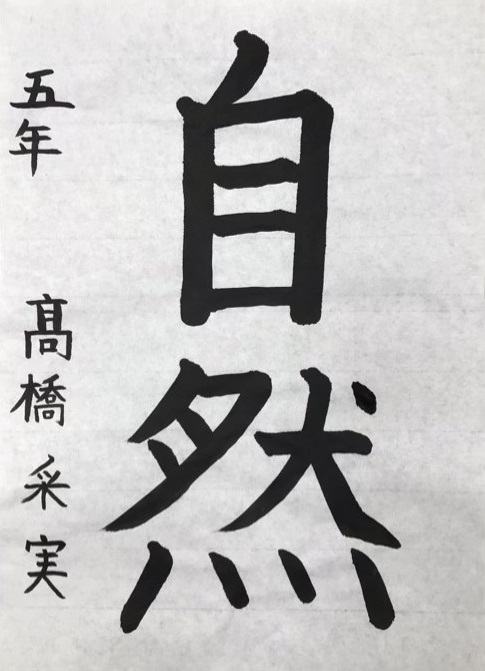 自然
五年 髙橋采実